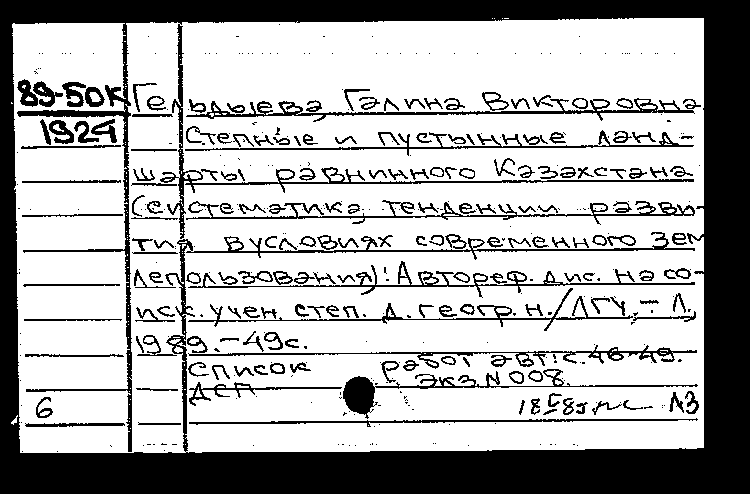 89-50К Гельдыева, Галина Викторовна
1924 Степные и пустынные ланд-
шафты равнинного Казахстана
(систематика, тенденции разви-
тия в условиях современного зем
лепользования): Автореф. дис. на со-
иск. учен. степ. д. геогр. н./ЛГУ, – Л.,
1989. – 49с.
Список работ авт.: с. 46-49.
ДСП Экз. N 008.
6 ЛЗ